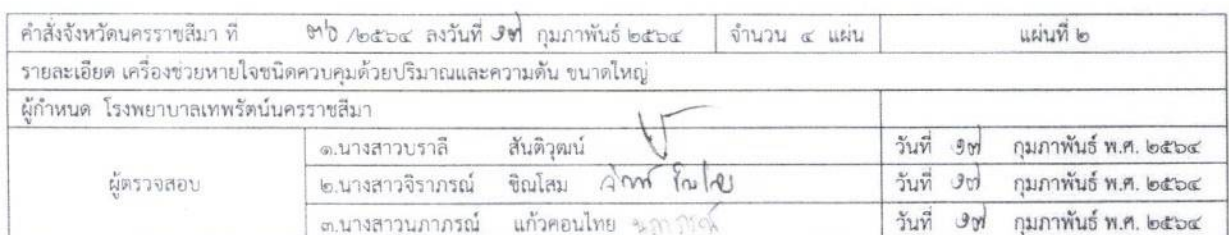 คำสั่งจังหวัดนครราชสีมา ที่ ๓๖ /๒๕๖๔ ลงวันที่ ๑๗ กุมภาพันธ์ ๒๕๖๔ จำนวน ๔ แผ่น แผ่นที่ ๒
รายละเอียด เครื่องช่วยหายใจชนิดควบคุมด้วยปริมาณและความดัน ขนาดใหญ่
ผู้กำหนด โรงพยาบาลเทพรัตน์นครราชสีมา
๑.นางสาวบราลี สันติวุฒน์ วันที่ ๑๗ กุมภาพันธ์ พ.ศ. ๒๕๖๔
ผู้ตรวจสอบ ๒.นางสาวจิราภรณ์ ชิณโสม วันที่ ๑๗ กุมภาพันธ์ พ.ศ. ๒๕๖๔
๓.นางสาวนภาภรณ์ แก้วคอนไทย นภาภรณ์ วันที่ ๑๗ กุมภาพันธ์ พ.ศ. ๒๕๖๔